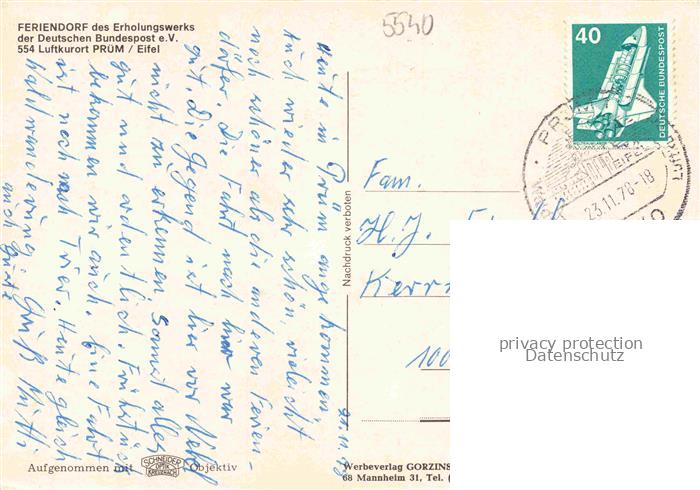 FERIENDORF des Erholungswerks
der Deutschen Bundespost e.V.
554 Luftkurort PRÜM / Eifel
5540
40
DEUTSCHE BUNDESPOST
PRÜM
EIFEL
23.11.78-18
Heute in Prüm angekommen,
auch wieder sehr schön, vielleicht
noch schöner als die anderen Ferien-
dörfer. Die Fahrt nach hier war
gut, die Gegend ist hier vor Nebel
nicht zu erkennen. Sonst alles
gut und ordentlich. Frühstück
bekommen wir auch. Eine Fahrt
ist noch nach Trier. Heute gleich
Waldwanderung Gruß Mutti
auch
Nachdruck verboten
Fam.
H. J.
100
Aufgenommen mit SCHNEIDER OPTIK KREUZNACH Objektiv
Werbeverlag GORZINS
68 Mannheim 31, Tel. (
privacy protection
Datenschutz